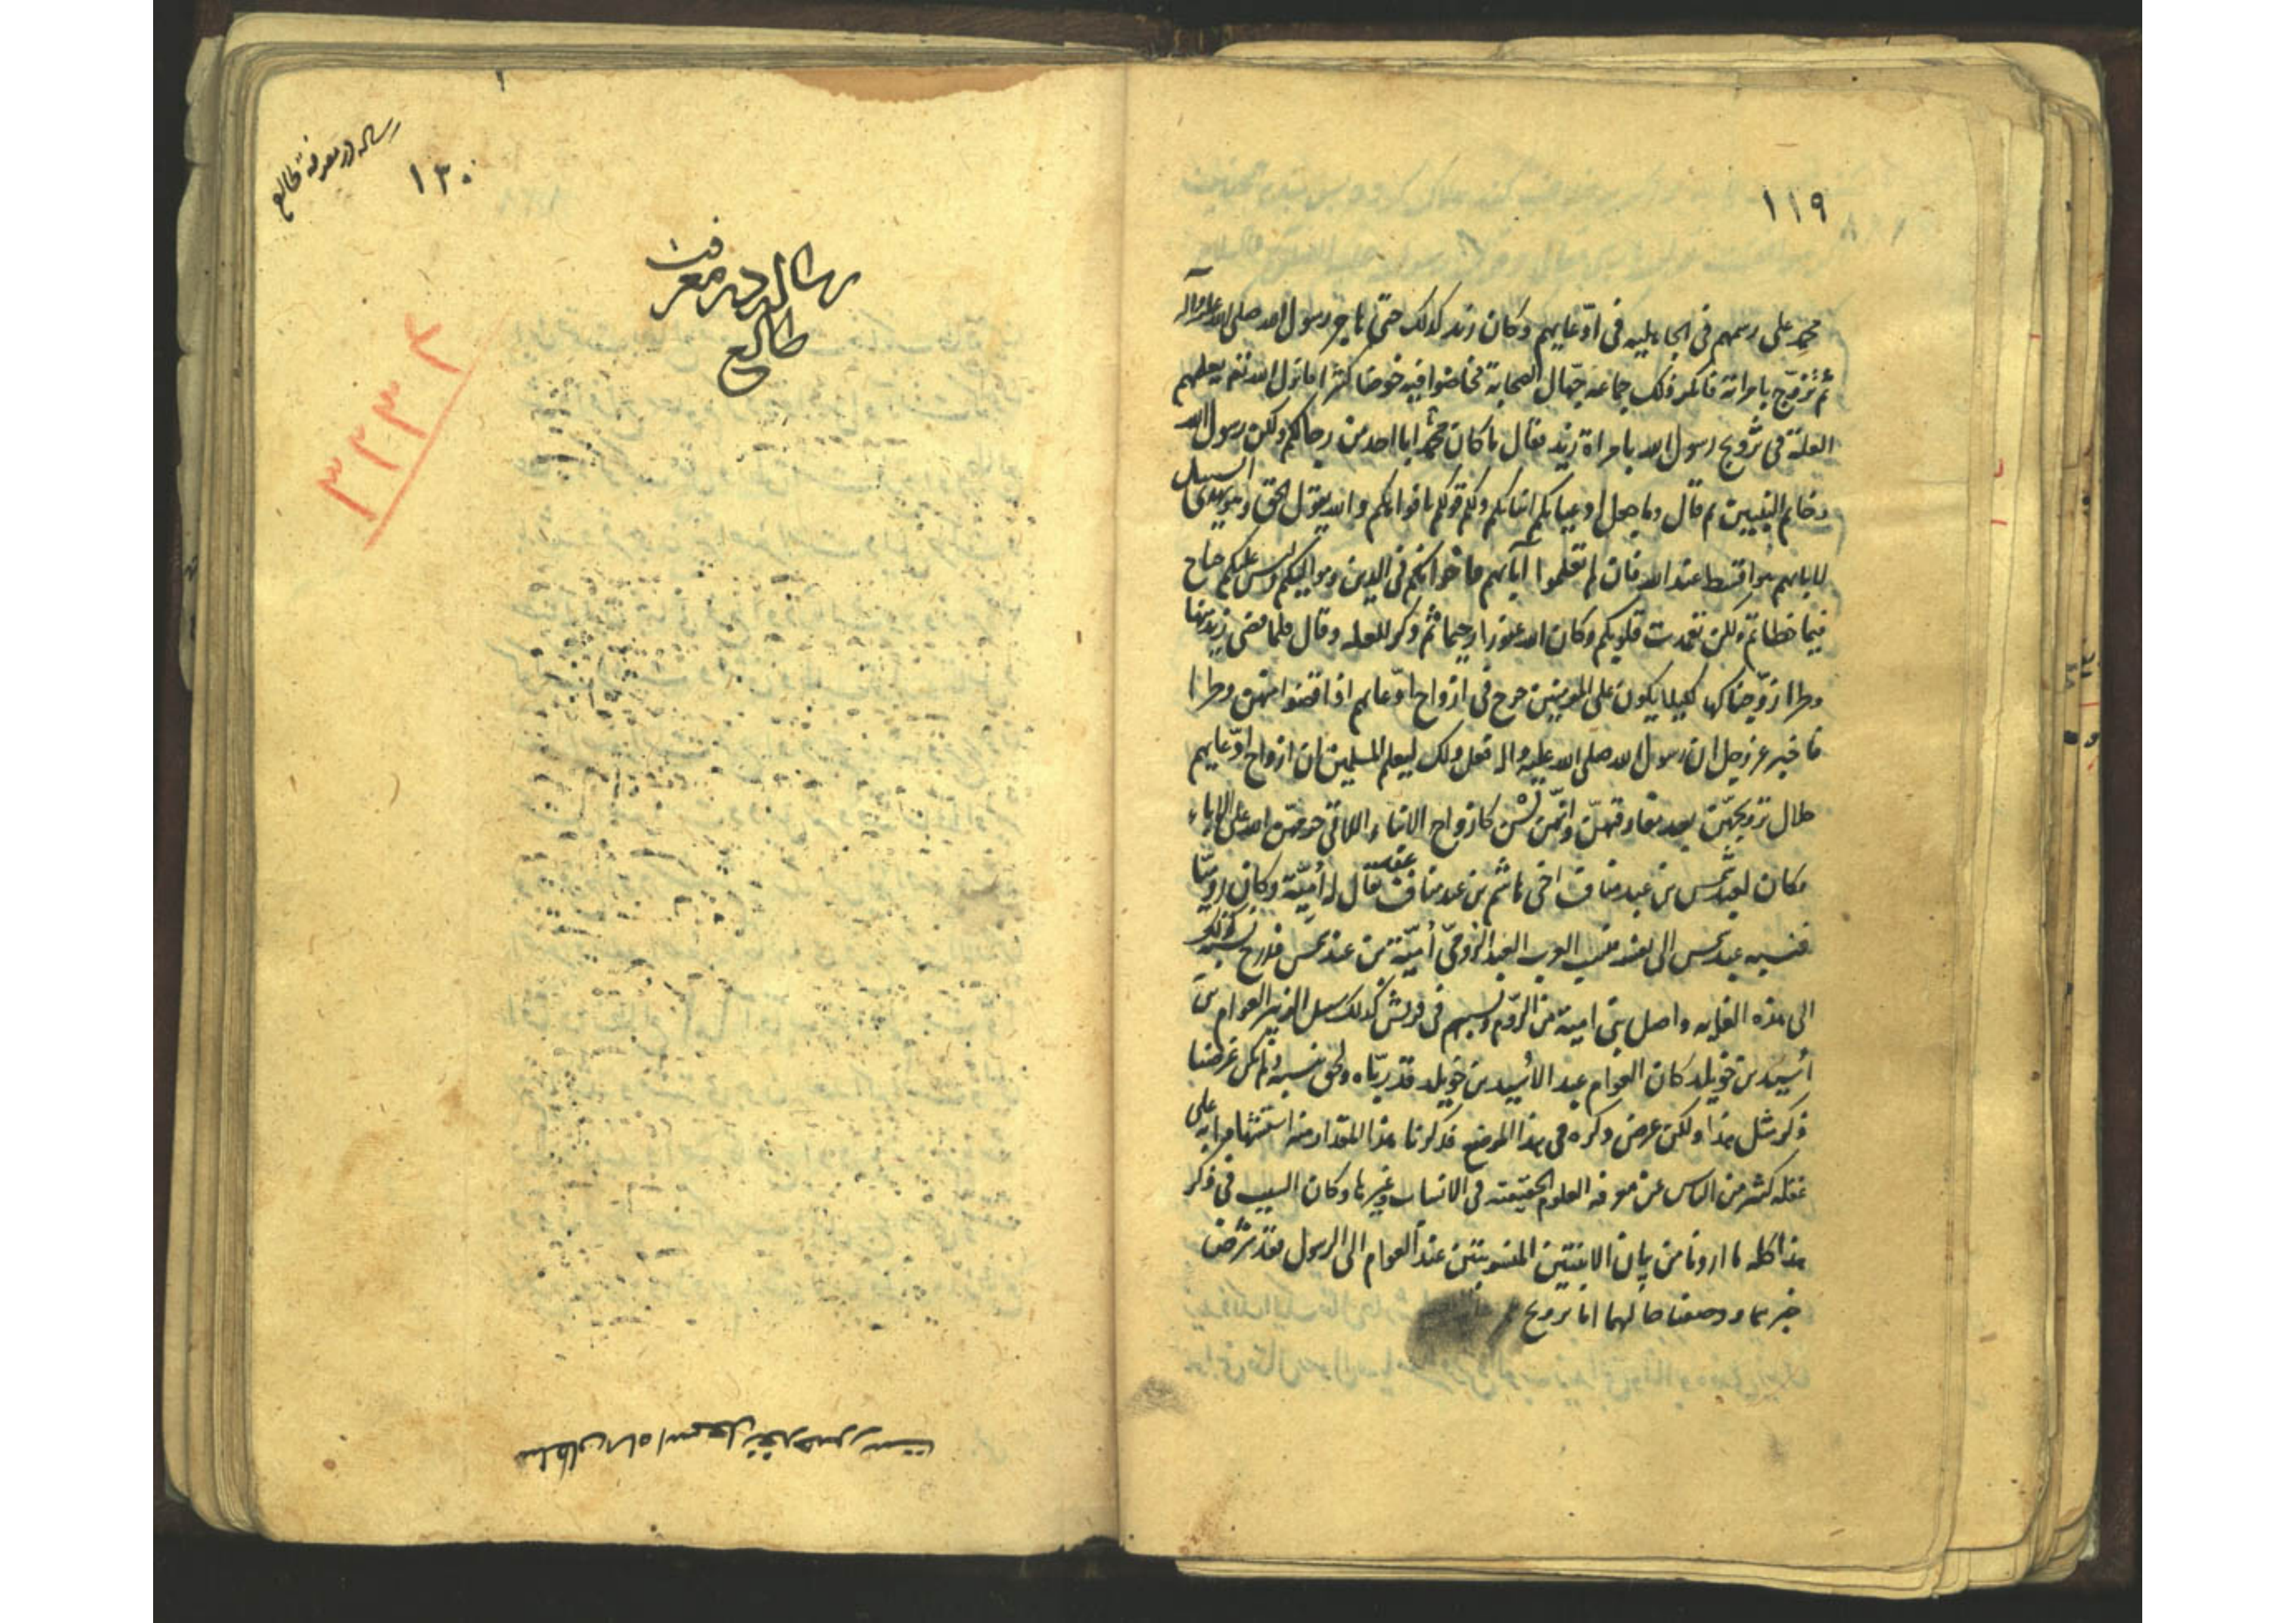 ١١٩
محمد على رسمهم فى الجاهليه فى ادّعايهم وكان زيد كذلك حتى هاجر رسول الله صلى الله عليه وآله
ثم تزوّج بامراته فانكر ذلك جماعه جهّال الصحابة فخاضوا فيه خوضا كثيرا فانزل الله تعريفهم
العلة فى تزويج رسول الله بامراة زيد فقال ما كان محمد ابا احد من رجالكم ولكن رسول الله
وخاتم النبيين ثم قال وما جعل ادعياءكم ابناءكم ذلكم قولكم بافواهكم والله يقول الحق وهو يهدى السبيل
لابائهم هو اقسط عند الله فان لم تعلموا آبائهم فاخوانكم فى الدين ومواليكم وليس عليكم جناح
فيما اخطاتم ولكن تعمدت قلوبكم وكان الله غفورا رحيما ثم ذكر العله وقال فلما قضى زيد منها
وطرا زوّجناكها لكيلا يكون على المومنين حرج فى ازواج ادّعايهم اذا قضوا منهن وطرا
فاخبر عز وجل ان رسول الله صلى الله عليه واله فعل ذلك ليعلم المسلمين ان ازواج ادّعايهم
حلال تزويجهّن بعد مفارقتهنّ وانّهن لسن كازواج الابناء اللاتى حرمهن الله على الاباء
فكان لعبد شمس بن عبد مناف اخى هاشم بن عبد مناف عبد يقال له أميّة وكان روميّا
فنسبه عبد شمس الى نفسه فنسب العرب العبد الرّومىّ أميّة بن عبد شمس فدرج نسبه كذلك
الى هذه الغايه واصل بنى امية من الرّوم ونسبهم فى قريش كذلك سبيل الزبير العوام بن
أسيد بن خويلد كان العوام عبد الأسيد بن خويلد فتربّاه ولحق بنسبه ولم يكن غرضنا
ذكر مثل هذا ولكن عرض ذكره فى هذا الموضع فذكرنا هذا المقدار منه استشهادا به على
غفله كثير من الناس عن معرفه العلوم الحقيقيه فى الانساب وغيرها وكان السبب فى ذكر
هذا كله ما اردنا من بيان الابنتين المنسوبتين عند العوام الى الرسول فقد شرحنا
خبرهما ووصفنا حالهما اما تزويج
رساله در معرفة طالع
١٣٠
رساله در معرفت
طالع
٣٢٣٢